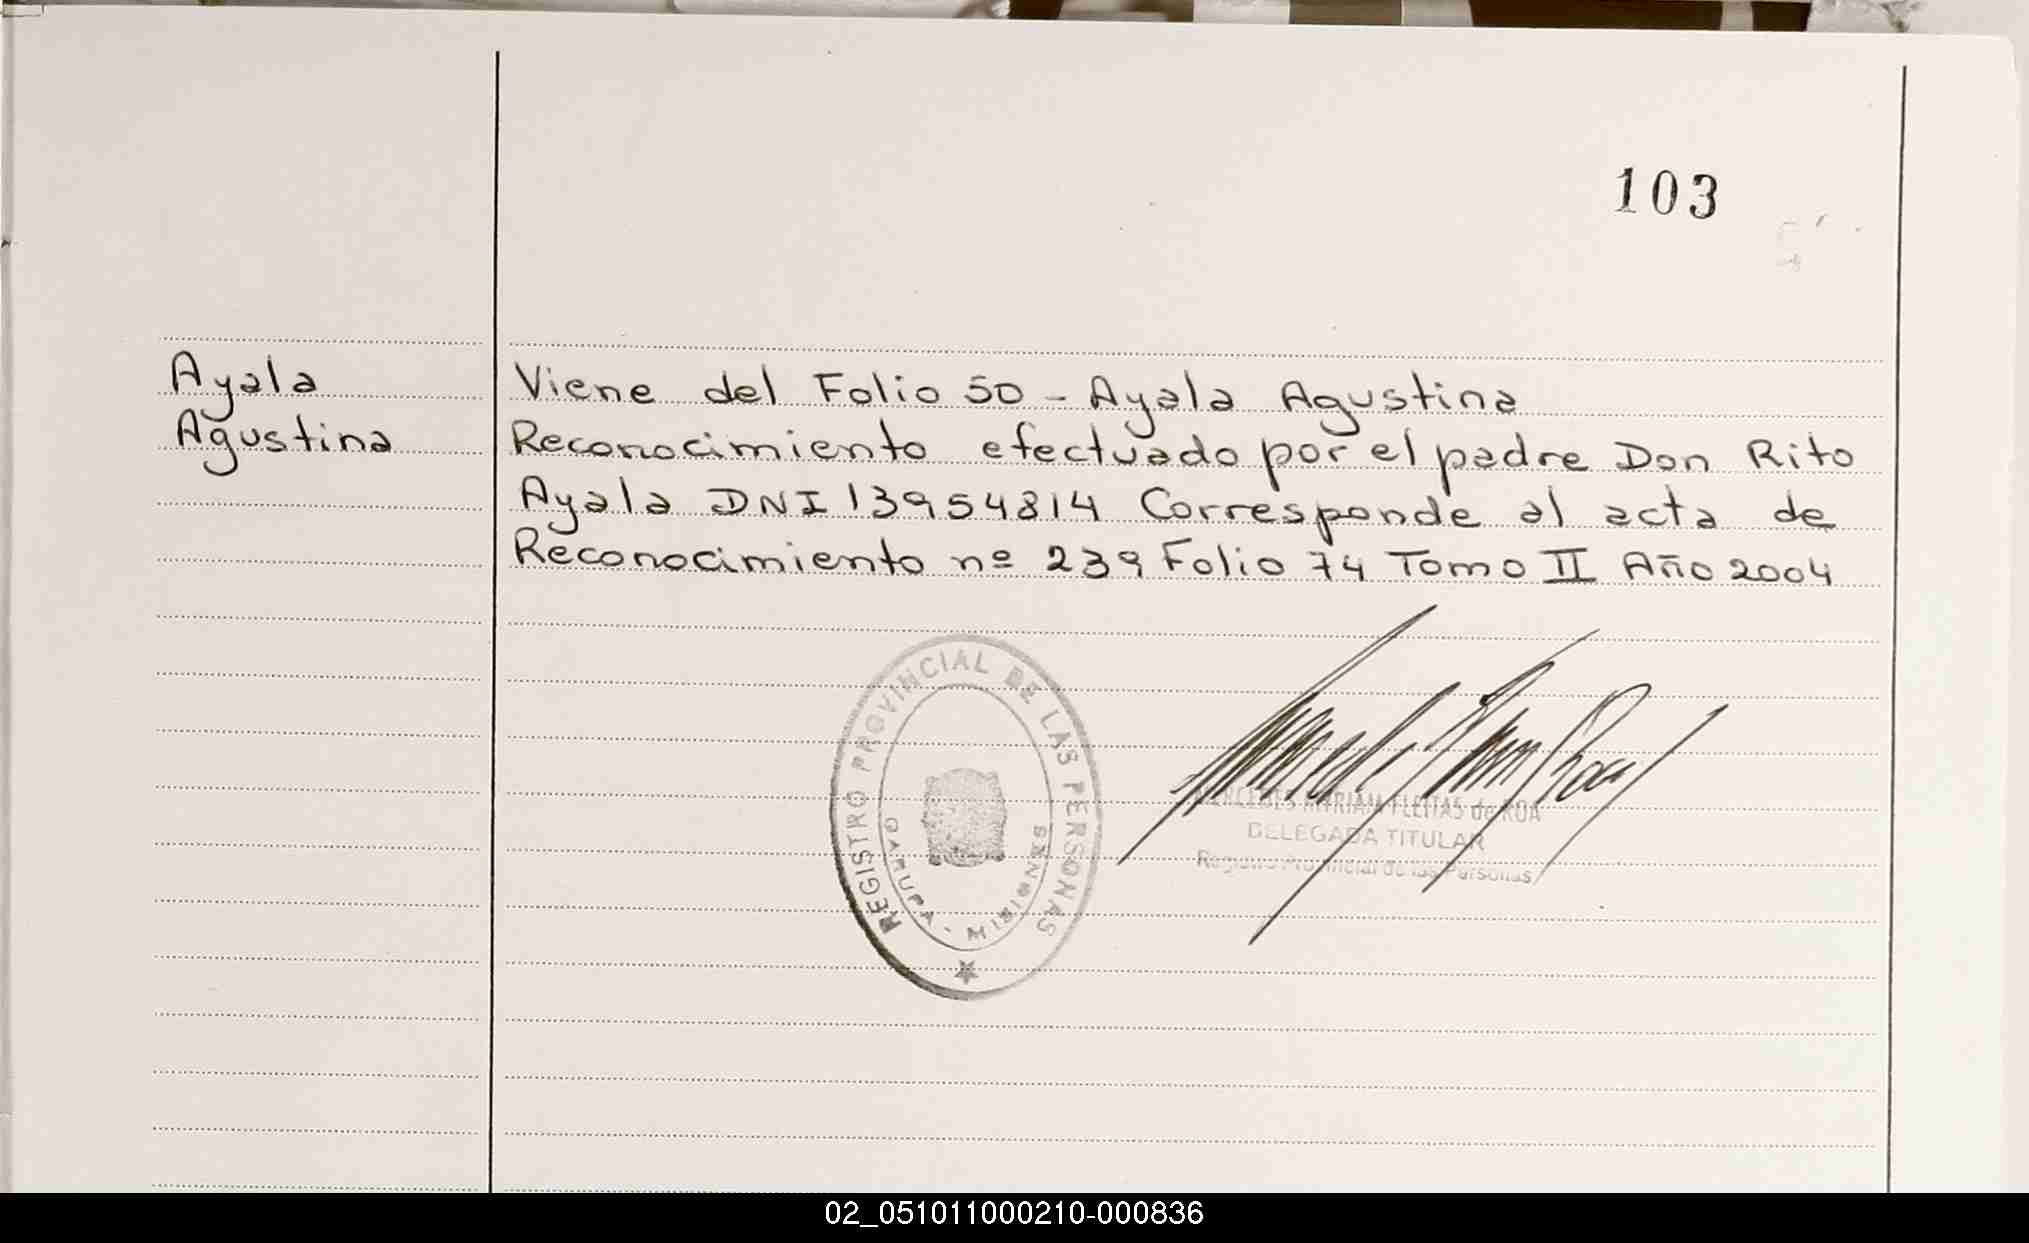 103
Ayala
Agustina
Viene del Folio 50 - Ayala Agustina
Reconocimiento efectuado por el padre Don Rito
Ayala DNI 13954814 Corresponde al acta de
Reconocimiento nº 239 Folio 74 Tomo II Año 2004
REGISTRO PROVINCIAL DE LAS PERSONAS
GARUPA - MISIONES
MERCEDES MIRIAM FLEITAS de ROA
DELEGADA TITULAR
Registro Provincial de las Personas
02_051011000210-000836